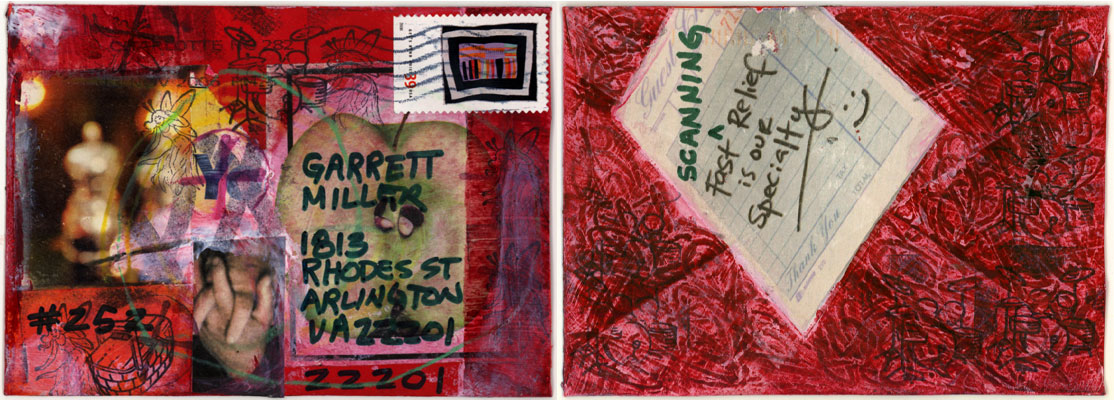 39
GARRETT
MILLER
1813
RHODES ST
ARLINGTON
VA 22201
22201
#252
Guest
SCANNING
Fast ^ Relief
is our
Specialty
Thank You